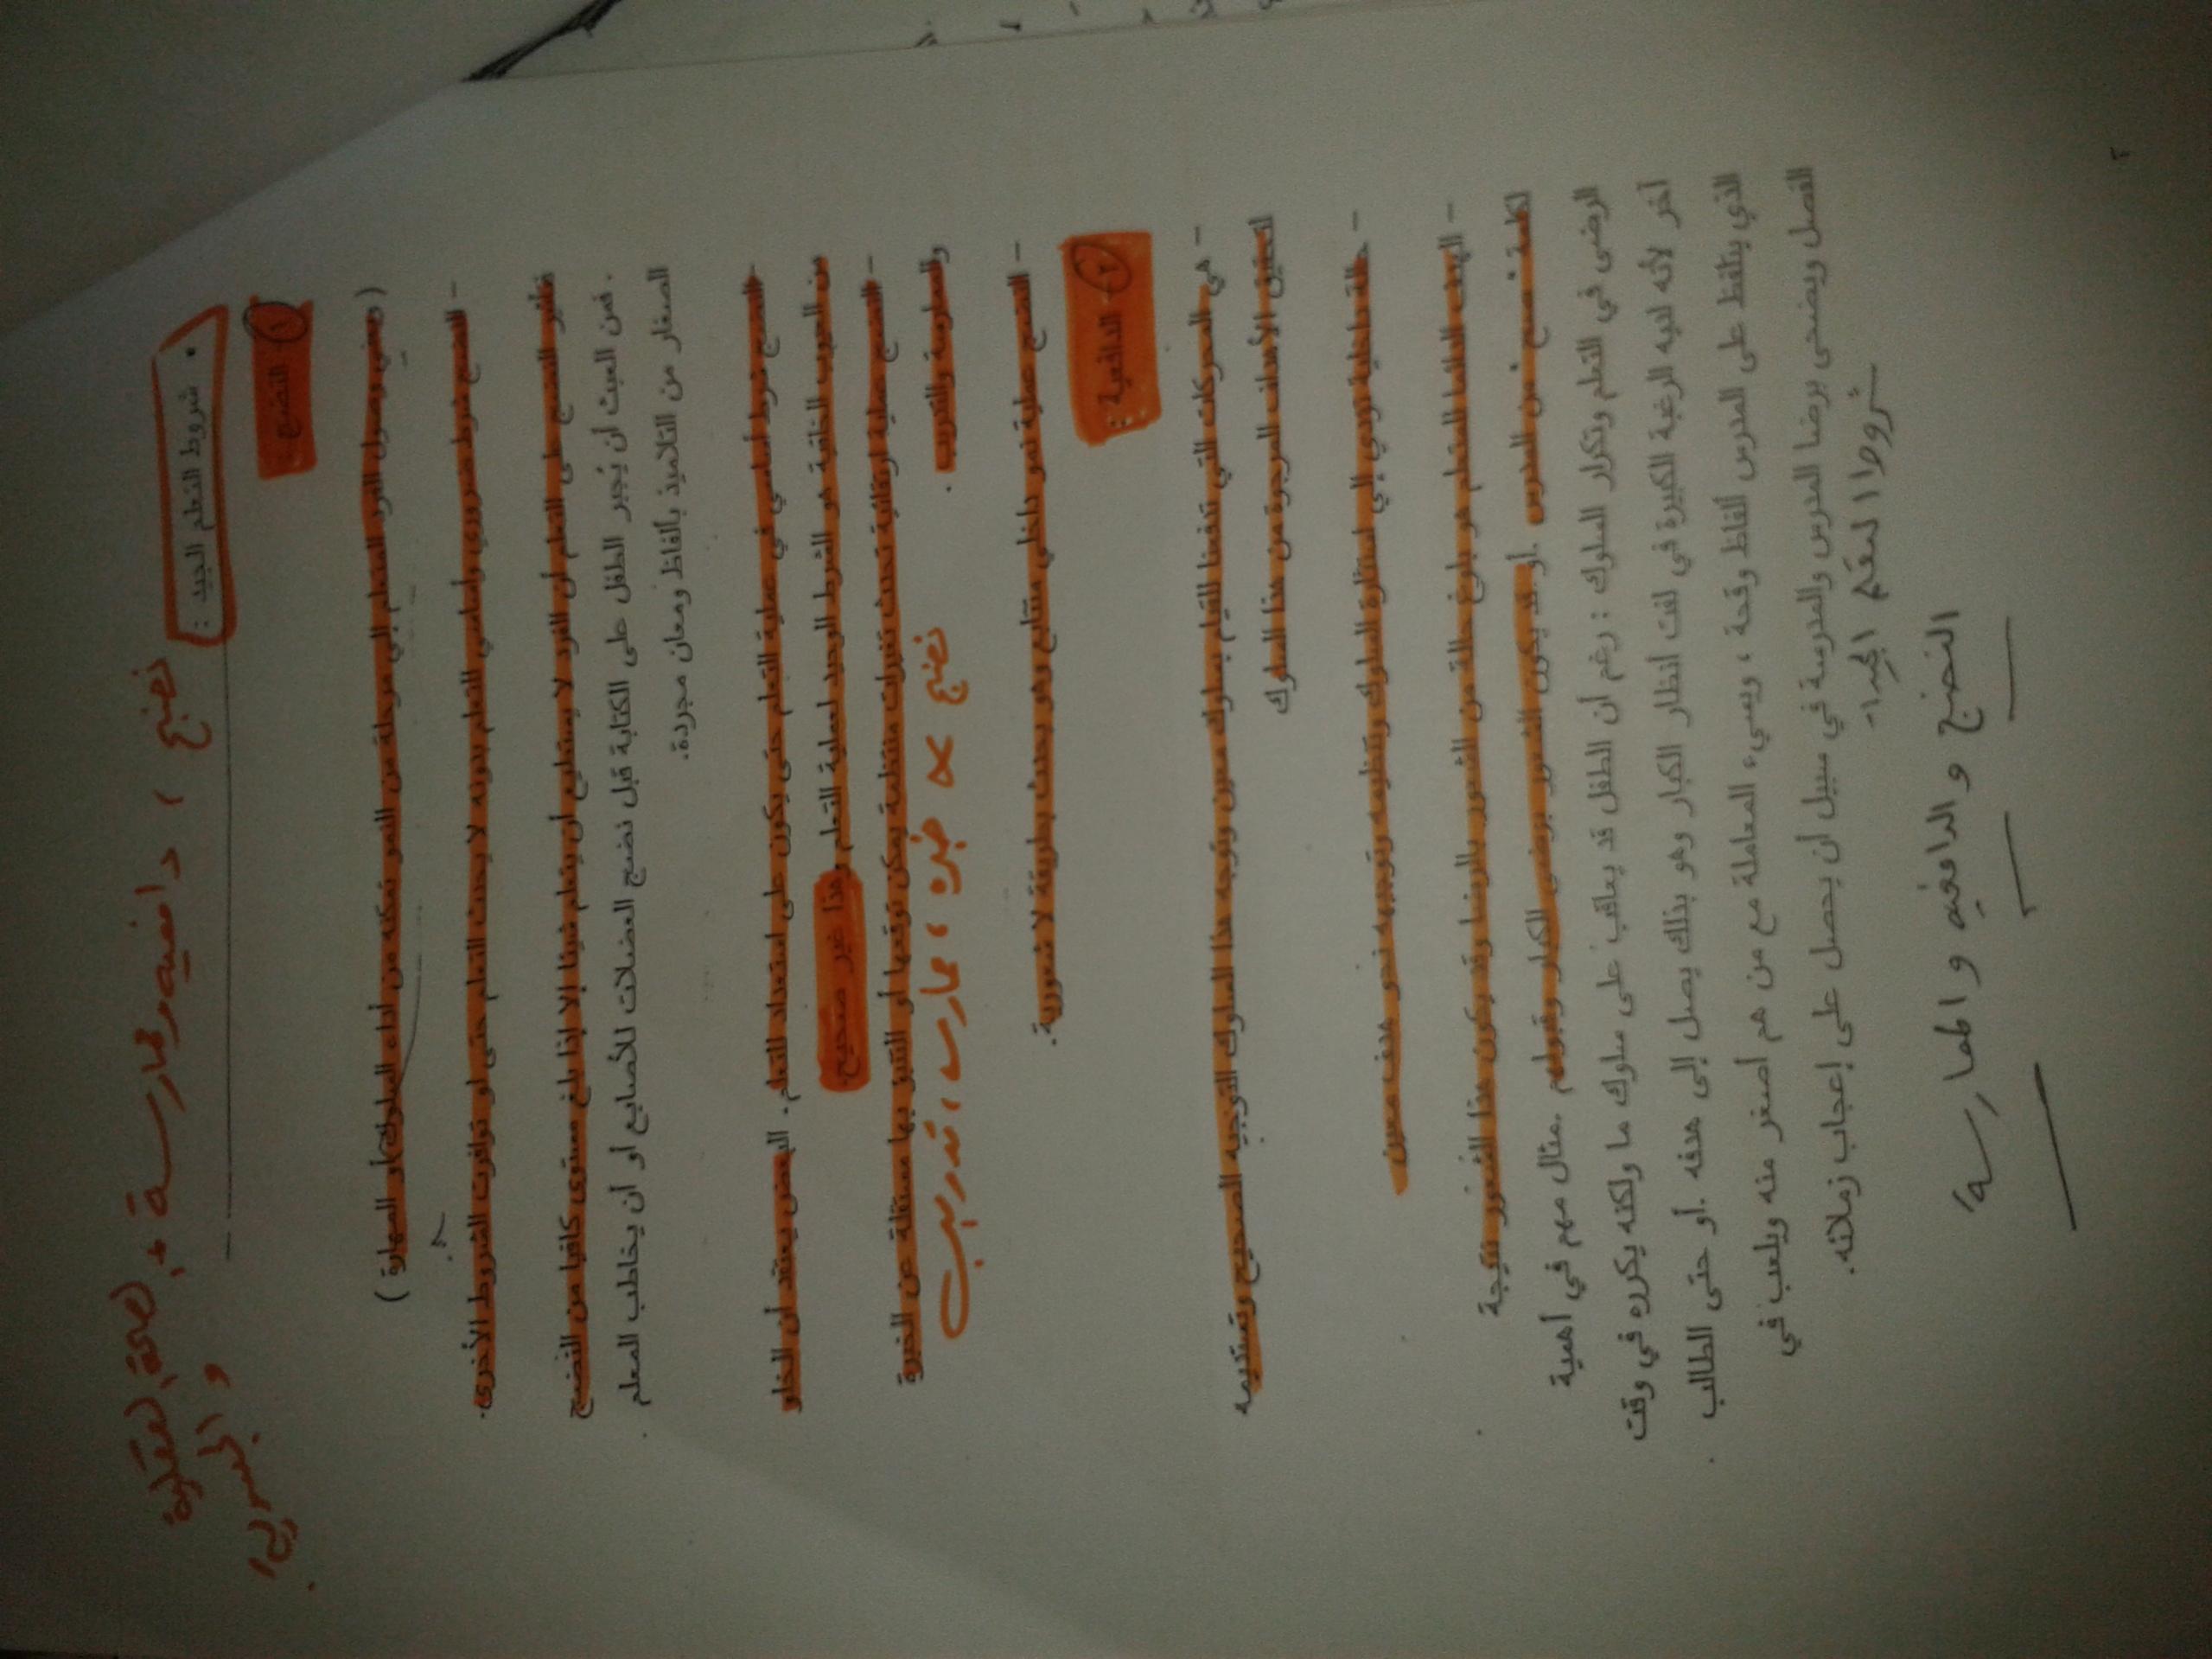 نضج ، دافعيه وممارسة + الصحة العقلية
والجسمية
• شروط التعلم الجيد :
١ النضج
( ويعني وصول الفرد المتعلم إلى مرحلة من النمو تمكنه من أداء السلوك أو المهارة )
- النضج شرط ضروري وأساسي للتعلم بدونه لا يحدث التعلم حتى لو توافرت الشروط الأخرى.
تأثير النضج على التعلم أن الفرد لا يستطيع أن يتعلم شيئا إلا إذا بلغ مستوى كافيا من النضج
. فمن العبث أن يُجبر الطفل على الكتابة قبل نضج العضلات للأصابع أو أن يخاطب المعلم
الصغار من التلاميذ بألفاظ ومعان مجردة.
- النضج شرط أساسي في عملية التعلم حتى يكون على استعداد للتعلم. البعض يعتقد أن الخلو
من العيوب الخلقية هو الشرط الوحيد لعملية التعلم وهذا غير صحيح.
- النضج عملية ارتقائية تحدث تغيرات منتظمة يمكن توقعها أو التنبؤ بها مستقلة عن الخبرة
والممارسة والتدريب .
نضج ≠ خبره ، ممارسه ، تدريب
- النضج عملية نمو داخلي متتابع وهو يحدث بطريقة لا شعورية.
٢ - الدافعية :
- هي المحركات التي تدفعنا للقيام بسلوك معين وتوجه هذا السلوك التوجيه الصحيح وتستديمه
لتحقيق الأهداف المرجوة من هذا السلوك
- حالة داخلية تؤدي إلى استثارة السلوك وتنظيمه وتوجيهه نحو هدف معين
- الهدف الدائما للمتعلم هو بلوغ حالة من الشعور بالرضا وقد يكون هذا الشعور نتيجة
لكلمة مديح من المدرس أو قد يكون الشعور برضى الكبار وقبولهم .مثال مهم في أهمية
الرضى في التعلم وتكرار السلوك : رغم أن الطفل قد يعاقب على سلوك ما ولكنه يكرره في وقت
آخر لأنه لديه الرغبة الكبيرة في لفت انظار الكبار وهو بذلك يصل إلى هدفه .أو حتى الطالب
الذي يتلفظ على المدرس ألفاظ وقحة ، ويسيء المعاملة مع من هم أصغر منه ويلعب في
الفصل ويضحى برضا المدرس والمدرسة في سبيل أن يحصل على إعجاب زملائه.
شروط التعلم الجيد :-
النضج و الدافعيه و الممارسة
٢